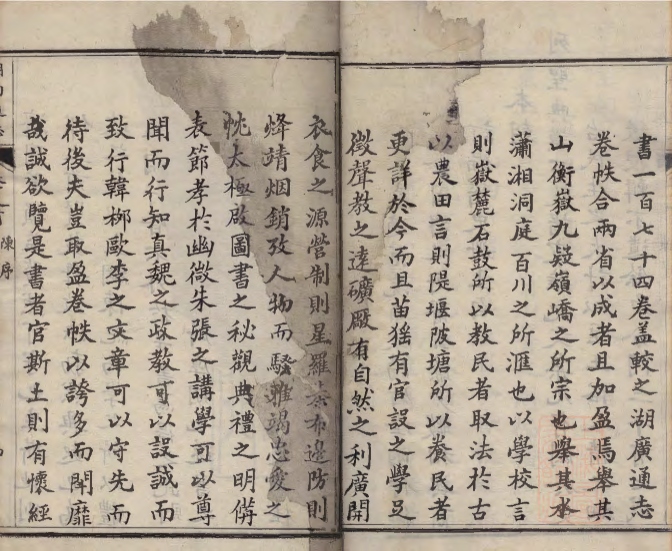 書一百七十四卷蓋較之湖廣通志
卷帙合兩省以成者且加盈焉舉其
山衡嶽九疑嶺嶠之所宗也舉其水
瀟湘洞庭百川之所滙也以學校言
則嶽麓石鼓所以教民者取法於古
以農田言則隄堰陂塘所以養民者
更詳於今而且苗猺有官設之學足
徵聲教之逺礦厰有自然之利廣開
衣食之源營制則星羅棊布邊防則
烽靖烟銷攷人物而騷雅竭忠愛之
忱太極啟圖書之秘觀典禮之明備
表節孝於幽微朱張之講學可以尊
聞而行知真魏之政教可以設誠而
致行韓栁歐李之文章可以守先而
待後夫豈取盈卷帙以誇多而鬭靡
哉誠欲覽是書者官斯土則有懷經
陳序